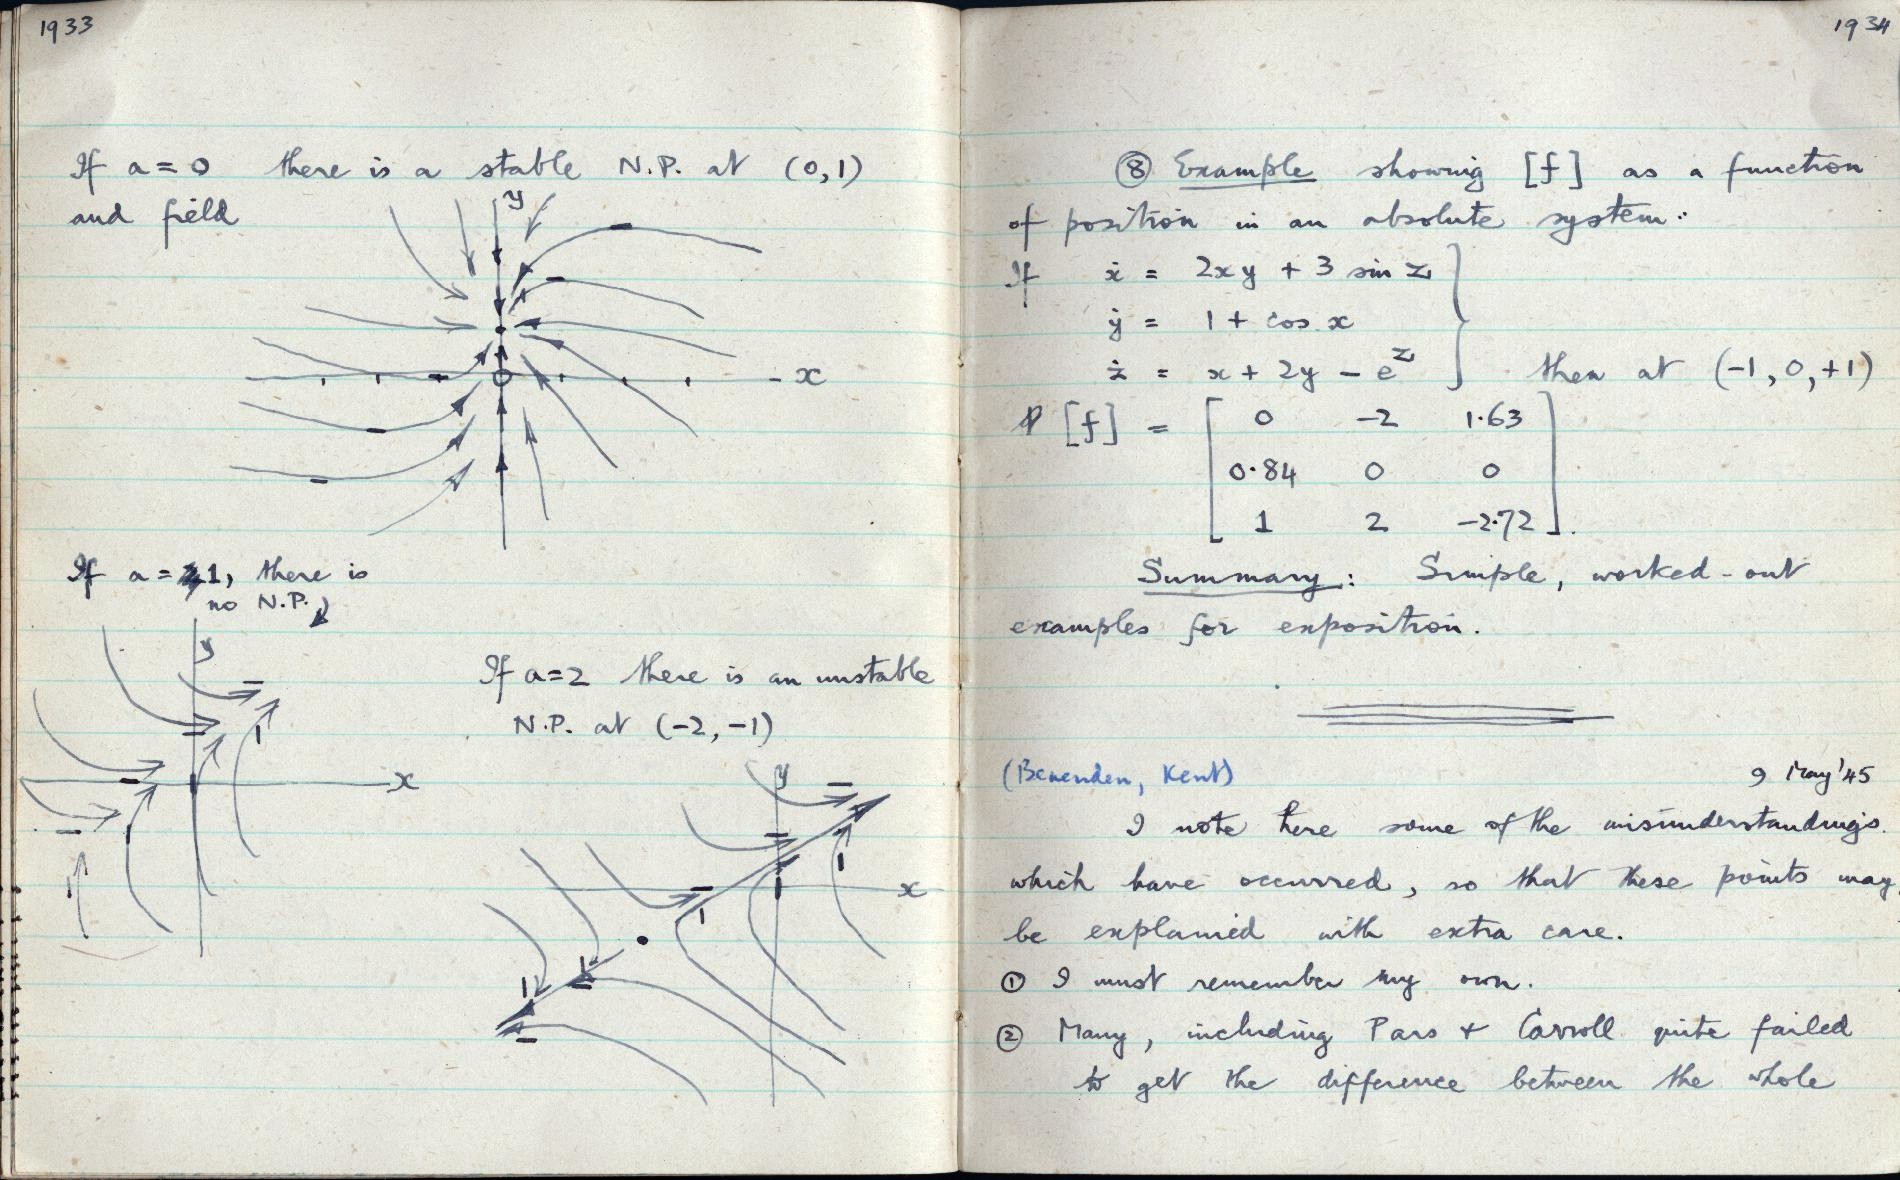 1933
If a = 0 there is a stable N.P. at (0,1)
and field
y
x
If a = 1, there is
no N.P.
y
x
If a=2 there is an unstable
N.P. at (-2, -1)
y
x
1934
⑧ Example showing [f] as a function
of position in an absolute system:
If ẋ = 2xy + 3 sin z
ẏ = 1 + cos x
ż = x + 2y - e^z } then at (-1, 0, +1)
[f] = [ 0 -2 1.63
0.84 0 0
1 2 -2.72 ].
Summary: Simple, worked-out
examples for exposition.
(Benenden, Kent) 9 May '45
I note here some of the misunderstandings
which have occurred, so that these points may
be explained with extra care.
① I must remember my own.
② Many, including Pars + Carroll quite failed
to get the difference between the whole